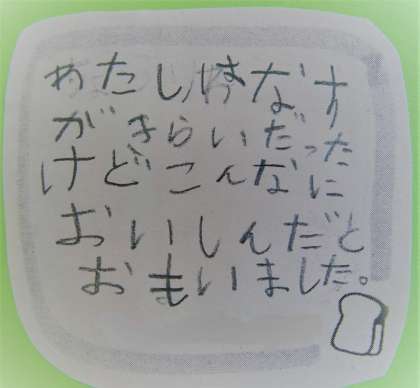 わたしはなす
がきらいだった
けどこんなに
おいしんだと
おもいました。